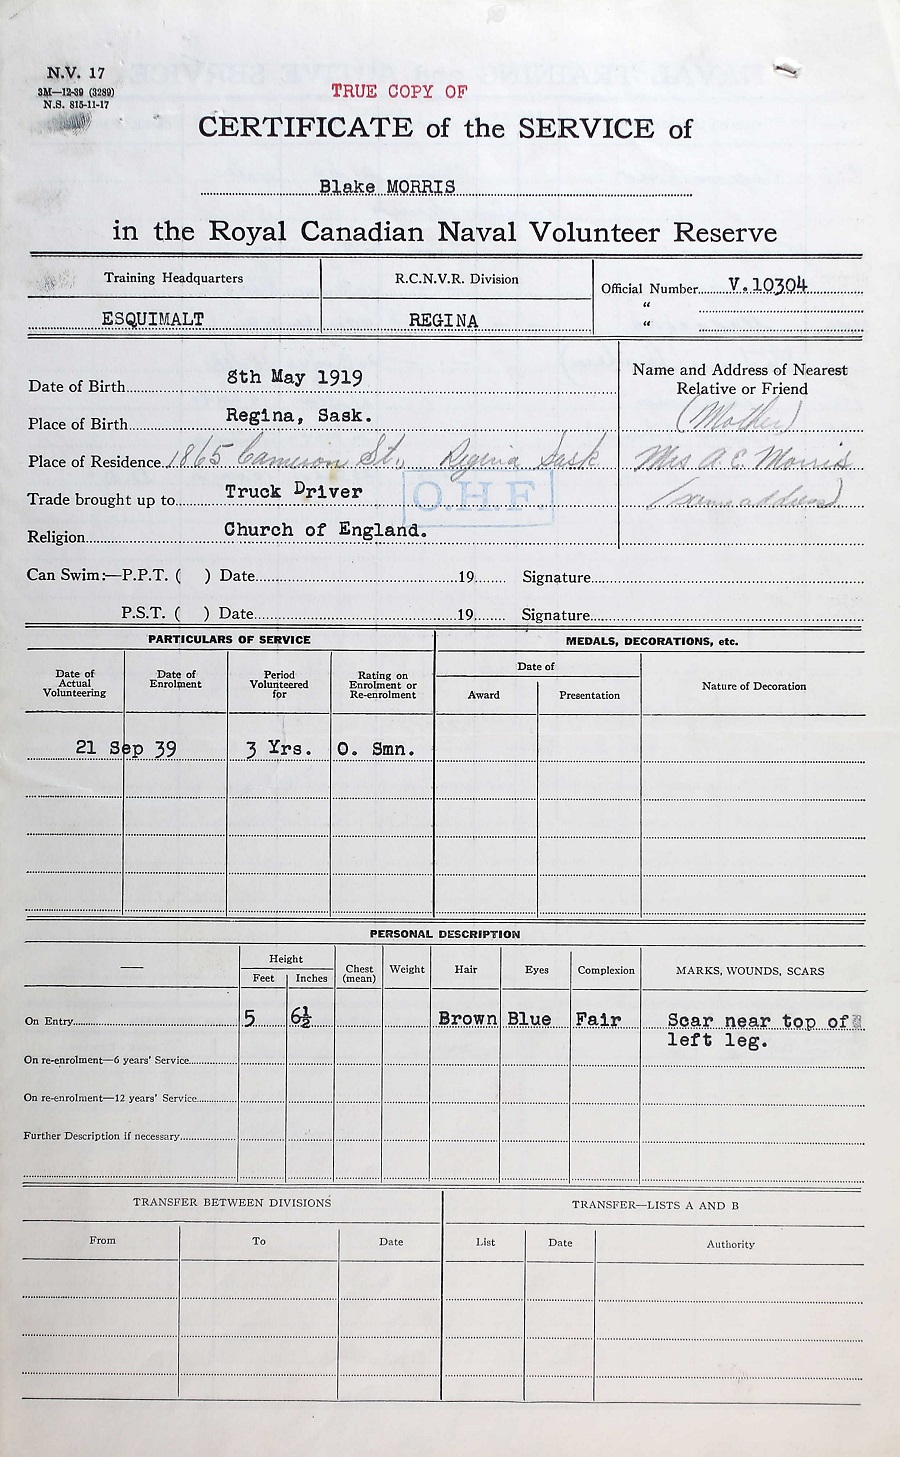 N.V. 17
3M—12-39 (3289)
N.S. 815-11-17
TRUE COPY OF
CERTIFICATE of the SERVICE of
Blake MORRIS
in the Royal Canadian Naval Volunteer Reserve
Training Headquarters
R.C.N.V.R. Division
Official Number V.10304
"
"
ESQUIMALT
REGINA
Date of Birth 8th May 1919
Place of Birth Regina, Sask.
Place of Residence 1865 Cameron St., Regina Sask
Trade brought up to Truck Driver
O.H.F.
Religion Church of England.
Name and Address of Nearest
Relative or Friend
(Mother)
Mrs A. E. Morris
(same address)
Can Swim:—P.P.T. ( ) Date 19 Signature
P.S.T. ( ) Date 19 Signature
PARTICULARS OF SERVICE
MEDALS, DECORATIONS, etc.
Date of
Actual
Volunteering
Date of
Enrolment
Period
Volunteered
for
Rating on
Enrolment or
Re-enrolment
Date of
Award
Presentation
Nature of Decoration
21 Sep 39 3 Yrs. O. Smn.
PERSONAL DESCRIPTION
—
Height
Feet
Inches
Chest
(mean)
Weight
Hair
Eyes
Complexion
MARKS, WOUNDS, SCARS
On Entry 5 6½ Brown Blue Fair Scar near top of
left leg.
On re-enrolment—6 years' Service
On re-enrolment—12 years' Service
Further Description if necessary
TRANSFER BETWEEN DIVISIONS
TRANSFER—LISTS A AND B
From
To
Date
List
Date
Authority